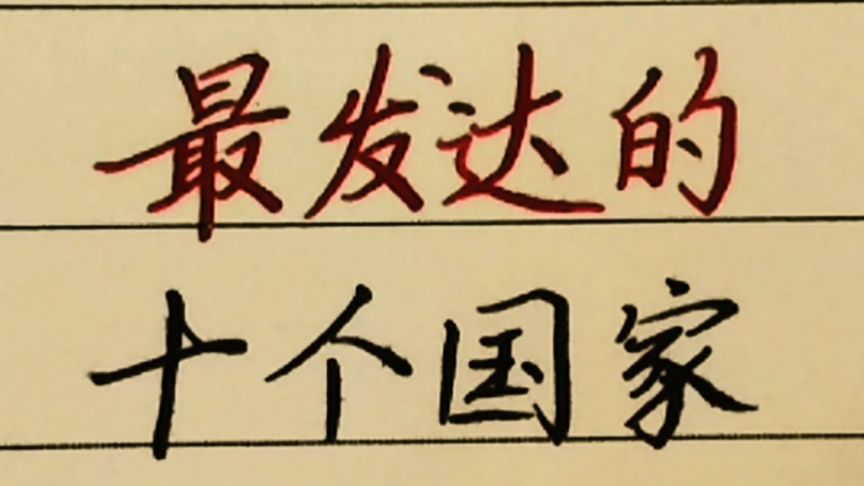 最发达的
十个国家